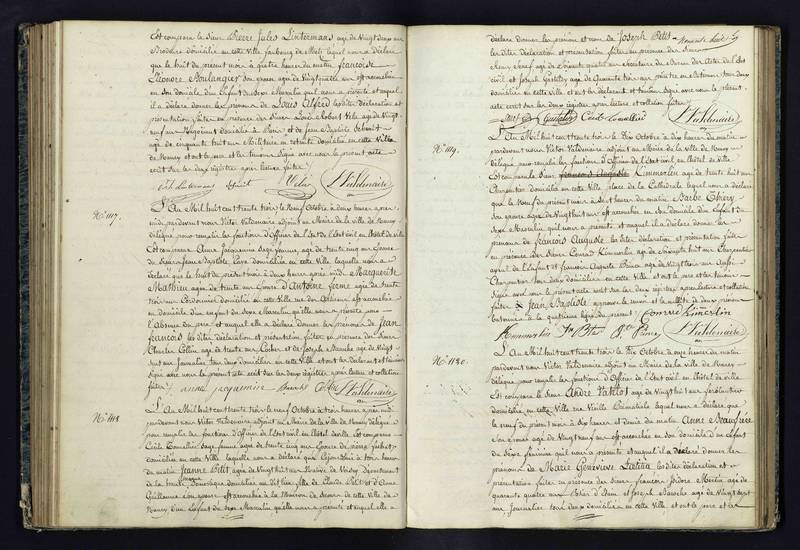 Est comparu le Sieur Pierre Jules Lintermans agé de Vingt deux ans
Brodeur domicilié en cette Ville faubourg de Metz lequel nous a déclaré
que le huit du présent mois à quatre heures du matin françoise
Eléonore Boulangier son épouse agée de Vingt quatre ans est accouchée
en son domicile d'un Enfant du Sexe Masculin qu'il nous a présenté et auquel
il a déclaré donner les prénoms de Louis Alfred lesdites déclaration et
présentation faites en présence des Sieurs Louis Robert Vila agé de Vingt
neuf ans domicilié à Paris et de Jean Baptiste
agé de cinquante huit ans Militaire en retraite domicilié en cette Ville
de Nancy et ont le père et les témoins signé avec nous le présent acte
écrit sur les deux registres après lecture faite.
Lintermans Vila Valdenaire
N° 1117.
L'An Mil huit cent trente trois le Neuf Octobre à deux heures après
midi pardevant nous Victor Valdenaire adjoint au Maire de la ville de Nancy
délégué pour remplir les fonctions d'Officier de l'Etat Civil en l'hôtel de ville
Est comparue Anne Jacquemin Sage femme agée de trente cinq ans épouse
de Jean Baptiste domiciliée en cette Ville laquelle nous a
déclaré que le huit du présent mois à deux heures après midi Marguerite
Mathieu agée de trente ans épouse d'Antoine ferme agé de trente
trois ans Cordonnier domicilié en cette Ville est accouchée
en son domicile d'un enfant du Sexe Masculin qu'elle nous a présenté pour
l'absence du père et auquel elle a déclaré donner les prénoms de Jean
françois les dites déclaration et présentation faites en présence des Sieurs
Charles Collin agé de trente ans Cocher et de Joseph Manche agé de Vingt
huit ans Journalier tous deux domiciliés en cette Ville et ont les déclarant et témoins
signé avec nous le présent acte écrit sur les deux registres après lecture et collation
faites. anne jacquemin Manche Collin Valdenaire
N° 1118
L'An Mil huit cent trente trois le neuf Octobre à trois heures après midi
pardevant nous Victor Valdenaire adjoint au Maire de la Ville de Nancy délégué
pour remplir les fonctions d'Officier de l'Etat civil en l'hôtel de ville Est comparue
Cécile Tomellier sage femme agée de trente cinq ans
domiciliée en cette Ville laquelle nous a déclaré que Cejourd'hui à trois heures
du matin Jeanne Petit agée de Vingt huit ans Native de Département
de la Meuse Domestique domiciliée fille de Claude Petit et d'Anne
Guillaume son épouse est accouchée à la Maison de Secours de cette Ville de
Nancy d'un Enfant du Sexe Masculin qu'elle nous a présenté et auquel elle a
déclaré donner les prénom et nom de Joseph Petit
les dites déclaration et présentation faites en présence des Sieurs
Remy agé de Cinquante quatre ans Secrétaire du Bureau des Actes de l'Etat
civil et Joseph agé de Quarante trois ans tous deux
domiciliés en cette Ville et ont les déclarant et témoins signé avec nous le présent
acte écrit sur les deux registres après lecture et collation faites.
Cécile Tomellier Valdenaire
N° 1119.
L'An Mil huit cent trente trois le Dix Octobre à dix heures du matin
pardevant nous Victor Valdenaire adjoint au Maire de la ville de Nancy
délégué pour remplir les fonctions d'Officier de l'Etat civil en l'hôtel de Ville
Est comparu le Sieur françois Auguste Kimmerlin agé de trente huit ans
Charpentier domicilié en cette Ville place de la Cathédrale lequel nous a déclaré
que le Neuf du présent mois à sept heures du matin Barbe Thiery
son épouse agée de Vingt huit ans est accouchée en son domicile d'un Enfant du
Sexe Masculin qu'il nous a présenté et auquel il a déclaré donner les
prénoms de françois Auguste les dites déclaration et présentation faites
en présence des Sieurs Conrad Kimmerlin agé de Cinquante huit ans Charpentier
ayeul de l'Enfant et françois Auguste Prince agé de Vingt trois ans
Charpentier tous deux domiciliés en cette Ville et ont le père et les témoins
signé avec nous le présent acte écrit sur les deux registres après lecture et collation
faites. Jean Baptiste approuvé le renvoi et la nullité de deux prénoms
conrad Kimerlin
Kimmerlin Prince Valdenaire
N° 1120.
L'An Mil huit cent trente trois le Dix Octobre à onze heures du matin
pardevant nous Victor Valdenaire adjoint au Maire de la Ville de Nancy
délégué pour remplir les fonctions d'Officier de l'Etat civil en l'hôtel de ville
Est comparu le Sieur André Vatelot agé de Vingt huit ans ferblantier
domicilié en cette Ville rue Vieille Primatiale lequel nous a déclaré que
le neuf du présent mois à dix heures et demie du matin Anne Beaufrére
son épouse agée de Vingt neuf ans est accouchée en son domicile d'un enfant
du Sexe féminin qu'il nous a présenté et auquel il a déclaré donner les
prénoms de Marie Geneviève Lætitia les dites déclaration et
présentation faites en présence des Sieurs françois Isidore Merlin agé de
quarante quatre ans Potier d'Etain et Joseph Manche agé de Vingt sept
ans Journalier tous deux domiciliés en cette Ville et ont le père et les